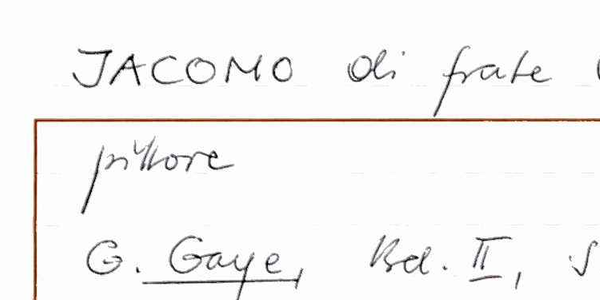 JACOMO di frate
pittore
G. Gaye, Bd. II, S